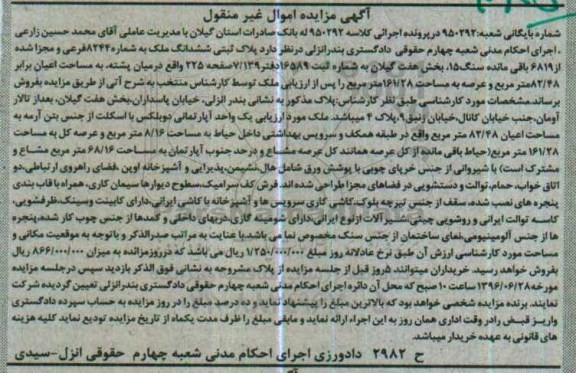 آگهی مزایده اموال غیر منقول
شماره بایگانی شعبه:۹۵۰۲۹۲ درپرونده اجرائی کلاسه ۹۵۰۲۹۲ له بانک صادرات استان گیلان با مدیریت عاملی آقای محمد حسین زارعی
، اجرای احکام مدنی شعبه چهارم حقوقی دادگستری بندرانزلی درنظر دارد پلاک ثبتی ششدانگ ملک به شماره۸۲۴۴فرعی و مجزا شده
از۶۸۱۹ باقی مانده سنگ۱۵، بخش هفت گیلان به شماره ثبت ۱۶۵۸۹دفتر۷/۱۳۹صفحه ۲۲۵ واقع درمیان پشته، به مساحت اعیان برابر
۸۲/۴۸متر مربع و عرصه به مساحت ۱۶۱/۲۸متر مربع را پس از ارزیابی ملک توسط کارشناس منتخب به شرح آتی از طریق مزایده بفروش
برساند.مشخصات مورد کارشناسی طبق نظر کارشناس:پلاک مذکور به نشانی بندر انزلی، خیابان پاسداران،بخش هفت گیلان، بعداز تالار
آومان،جنب خیابان کانال،خیابان زنبق۹،پلاک ۴ میباشد. ملک مورد ارزیابی یک واحد آپارتمانی دوبلکس با اسکلت از جنس بتن آرمه به
مساحت اعیان ۸۲/۴۸ متر مربع واقع در طبقه همکف و سرویس بهداشتی داخل حیاط به مساحت ۸/۱۶ متر مربع و عرصه کل به مساحت
۱۶۱/۲۸ متر مربع(حیاط باقی مانده از کل عرصه همانند کل عرصه مشاع و درحد جنوب آپارتمان به مساحت ۶۸/۱۶ متر مربع مشاع و
مشترک است) با شیروانی از جنس خرپای چوبی با پوشش ورق شامل هال،نشیمن،پذیرایی و آشپزخانه اوپن ،فضای راهروی ارتباطی،دو
اتاق خواب، حمام، توالت و دستشویی در فضاهای مجزا طراحی شده اند. فرش کف سرامیک،سطوح دیوارها سیمان کاری، همراه با قاب بندی
پنجره های نصب شده، سقف از جنس تیرچه بلوک،کاشی کاری سرویس ها و آشپزخانه با کاشی ایرانی،دارای کابینت وسینک،ظرفشویی،
کاسه توالت ایرانی و روشویی چینی،شیر آلات ازنوع ایرانی،دارای شومینه گازی،دربهای داخلی و کمدها از جنس چوب کار شده،پنجره
ها از جنس آلومینیومی،نمای ساختمان از جنس سنگ مخصوص نما می باشد.با عنایت به مراتب صدرالذکر و باتوجه به موقعیت مکانی و
مساحت مورد کارشناسی ارزش آن طبق نرخ عادلانه روز مبلغ ۱/۲۵۰/۰۰۰/۰۰۰ ریال می باشد که درروزمزائده به میزان ۸۶۶/۰۰۰/۰۰۰ ریال
بفروش خواهد رسید. خریداران میتوانند ۵روز قبل از جلسه مزایده از پلاک مشروحه به نشانی فوق الذکر بازدید سپس درجلسه مزایده
مورخه ۱۳۹۶/۰۶/۲۸ ساعت ۱۰ صبح که محل آن دائره اجرای احکام مدنی شعبه چهارم حقوقی دادگستری بندرانزلی تعیین گردیده شرکت
نمایند. برنده مزایده شخصی خواهد بود که بالاترین مبلغ را پیشنهاد نماید و ده درصد مبلغ را در روز مزایده به حساب سپرده دادگستری
واریز قبض رادر وقت اداری همان روز به این اجراء ارائه نماید و مابقی مبلغ را ظرف مدت یکماه از تاریخ مزایده تودیع نماید کلیه هزینه
های قانونی به عهده خریدار میباشد.
ح ۲۹۸۲ دادورزی اجرای احکام مدنی شعبه چهارم حقوقی انزلی-سیدی